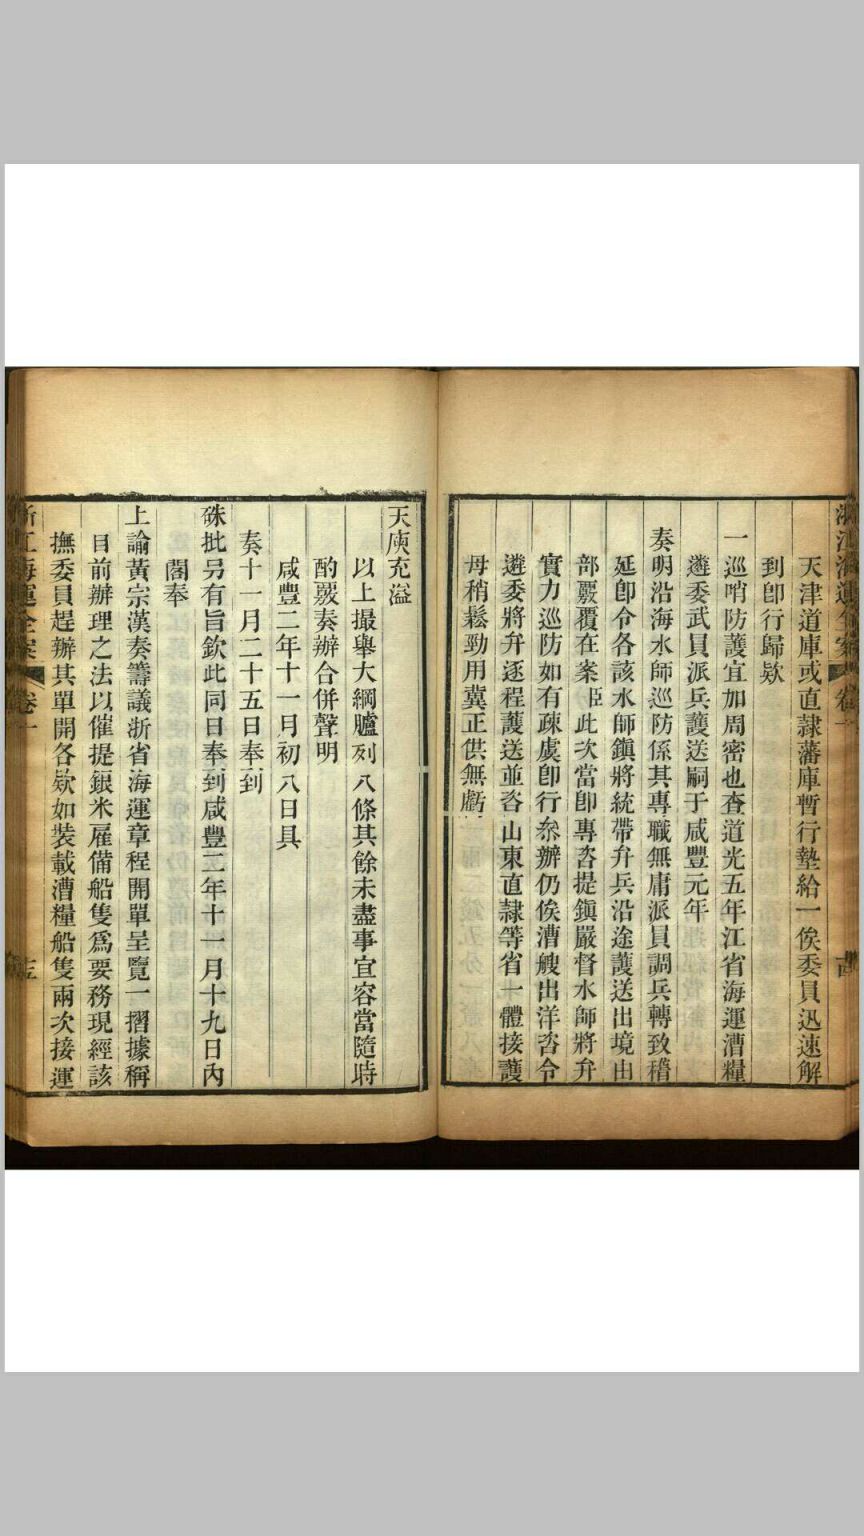 天津道庫或直隸藩庫暫行墊給一俟委員迅速解
到卽行歸欵
一巡哨防護宜加周密也查道光五年江省海運漕糧
遴委武員派兵護送嗣于咸豐元年
奏明沿海水師巡防係其專職無庸派員調兵轉致稽
延卽令各該水師鎭將統帶弁兵沿途護送出境由
部覈覆在案臣此次當卽專咨提鎭嚴督水師將弁
實力巡防如有疎虞卽行叅辦仍俟漕艘出洋咨令
遴委將弁逐程護送並咨山東直隸等省一體接護
毋稍鬆勁用冀正供無虧
天庾充溢
以上撮舉大綱臚列八條其餘未盡事宜容當隨時
酌覈奏辦合併聲明
咸豐二年十一月初八日具
奏十一月二十五日奉到
硃批另有旨欽此同日奉到咸豐二年十一月十九日內
閣奉
上諭黃宗漢奏籌議浙省海運章程開單呈覽一摺據稱
目前辦理之法以催提銀米雇備船隻爲要務現經該
撫委員趕辦其單開各欵如裝載漕糧船隻兩次接運
浙江海運全案 卷一